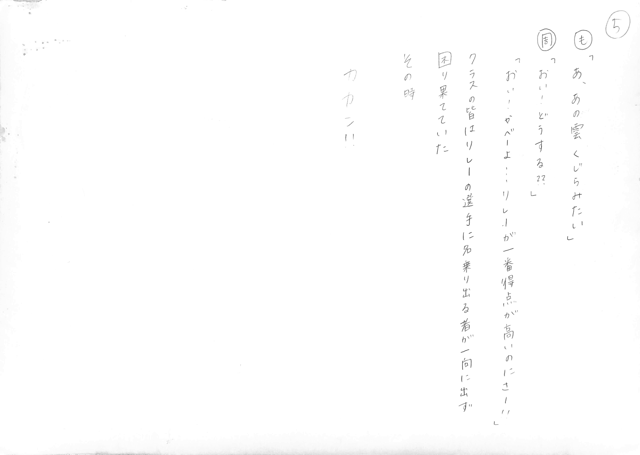 5
も「あ、あの雲くじらみたい」
周「おい!どうする??」
「おい!かべーよ…リレーが一番得点が高いのにさー!!」
クラスの皆はリレーの選手に名乗り出る者が一向に出ず
困り果てていた
その時
カカン!!